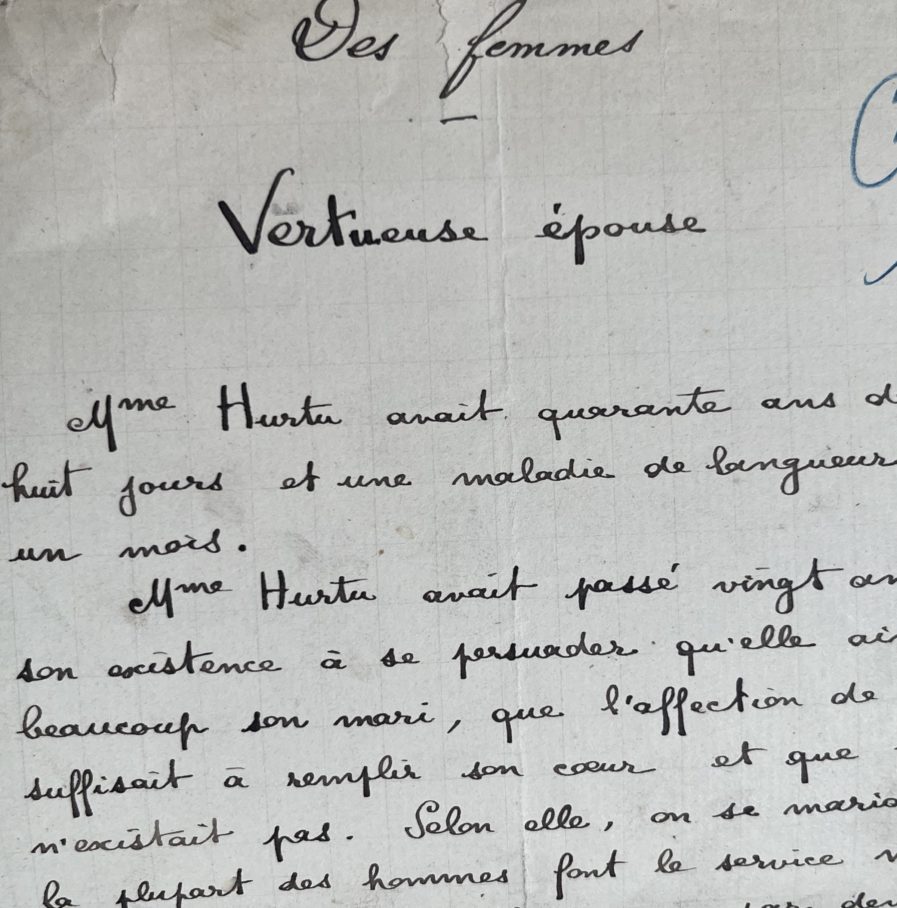 Des femmes
—
Vertueuse épouse
Mme Hurtu avait quarante ans d
huit jours et une maladie de langueur
un mois.
Mme Hurtu avait passé vingt an
son existence à se persuader qu'elle ai
beaucoup son mari, que l'affection de
suffisait à remplir son cœur et que
n'existait pas. Selon elle, on se mario
la plupart des hommes font le service